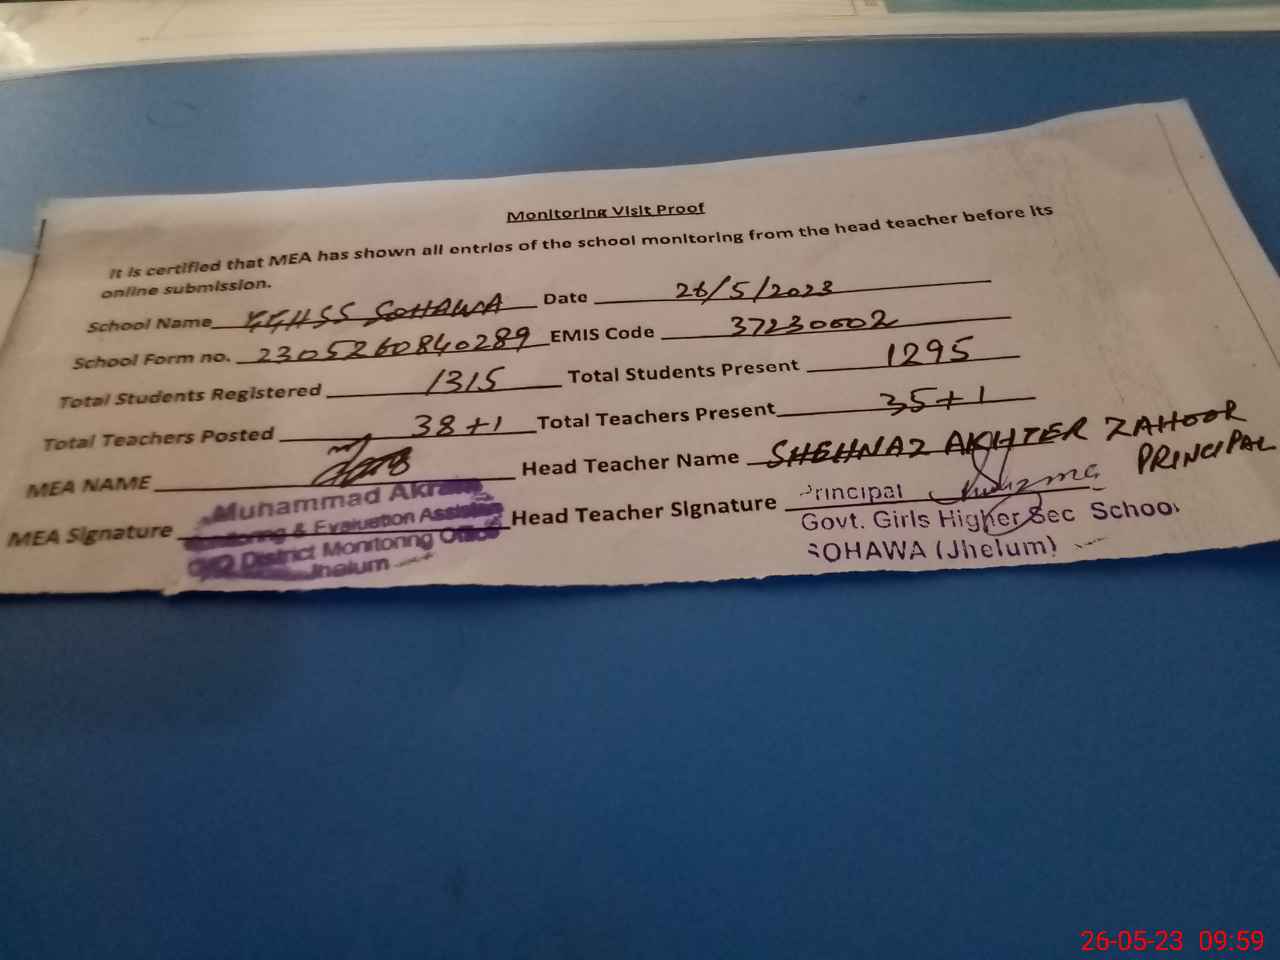 Monitoring Visit Proof
It is certified that MEA has shown all entries of the school monitoring from the head teacher before its
online submission.
School Name GGHSS SOHAWA Date 26/5/2023
School Form no. 2305260840289 EMIS Code 37230002
Total Students Registered 1315 Total Students Present 1295
Total Teachers Posted 38+1 Total Teachers Present 35+1
MEA NAME Head Teacher Name SHEHNAZ AKHTER ZAHOOR
PRINCIPAL
MEA Signature Head Teacher Signature
Muhammad Akram
Monitoring & Evaluation Assistan
District Monitoring Office
Jhelum
Principal
Govt. Girls Higher Sec School
SOHAWA (Jhelum)
26-05-23 09:59